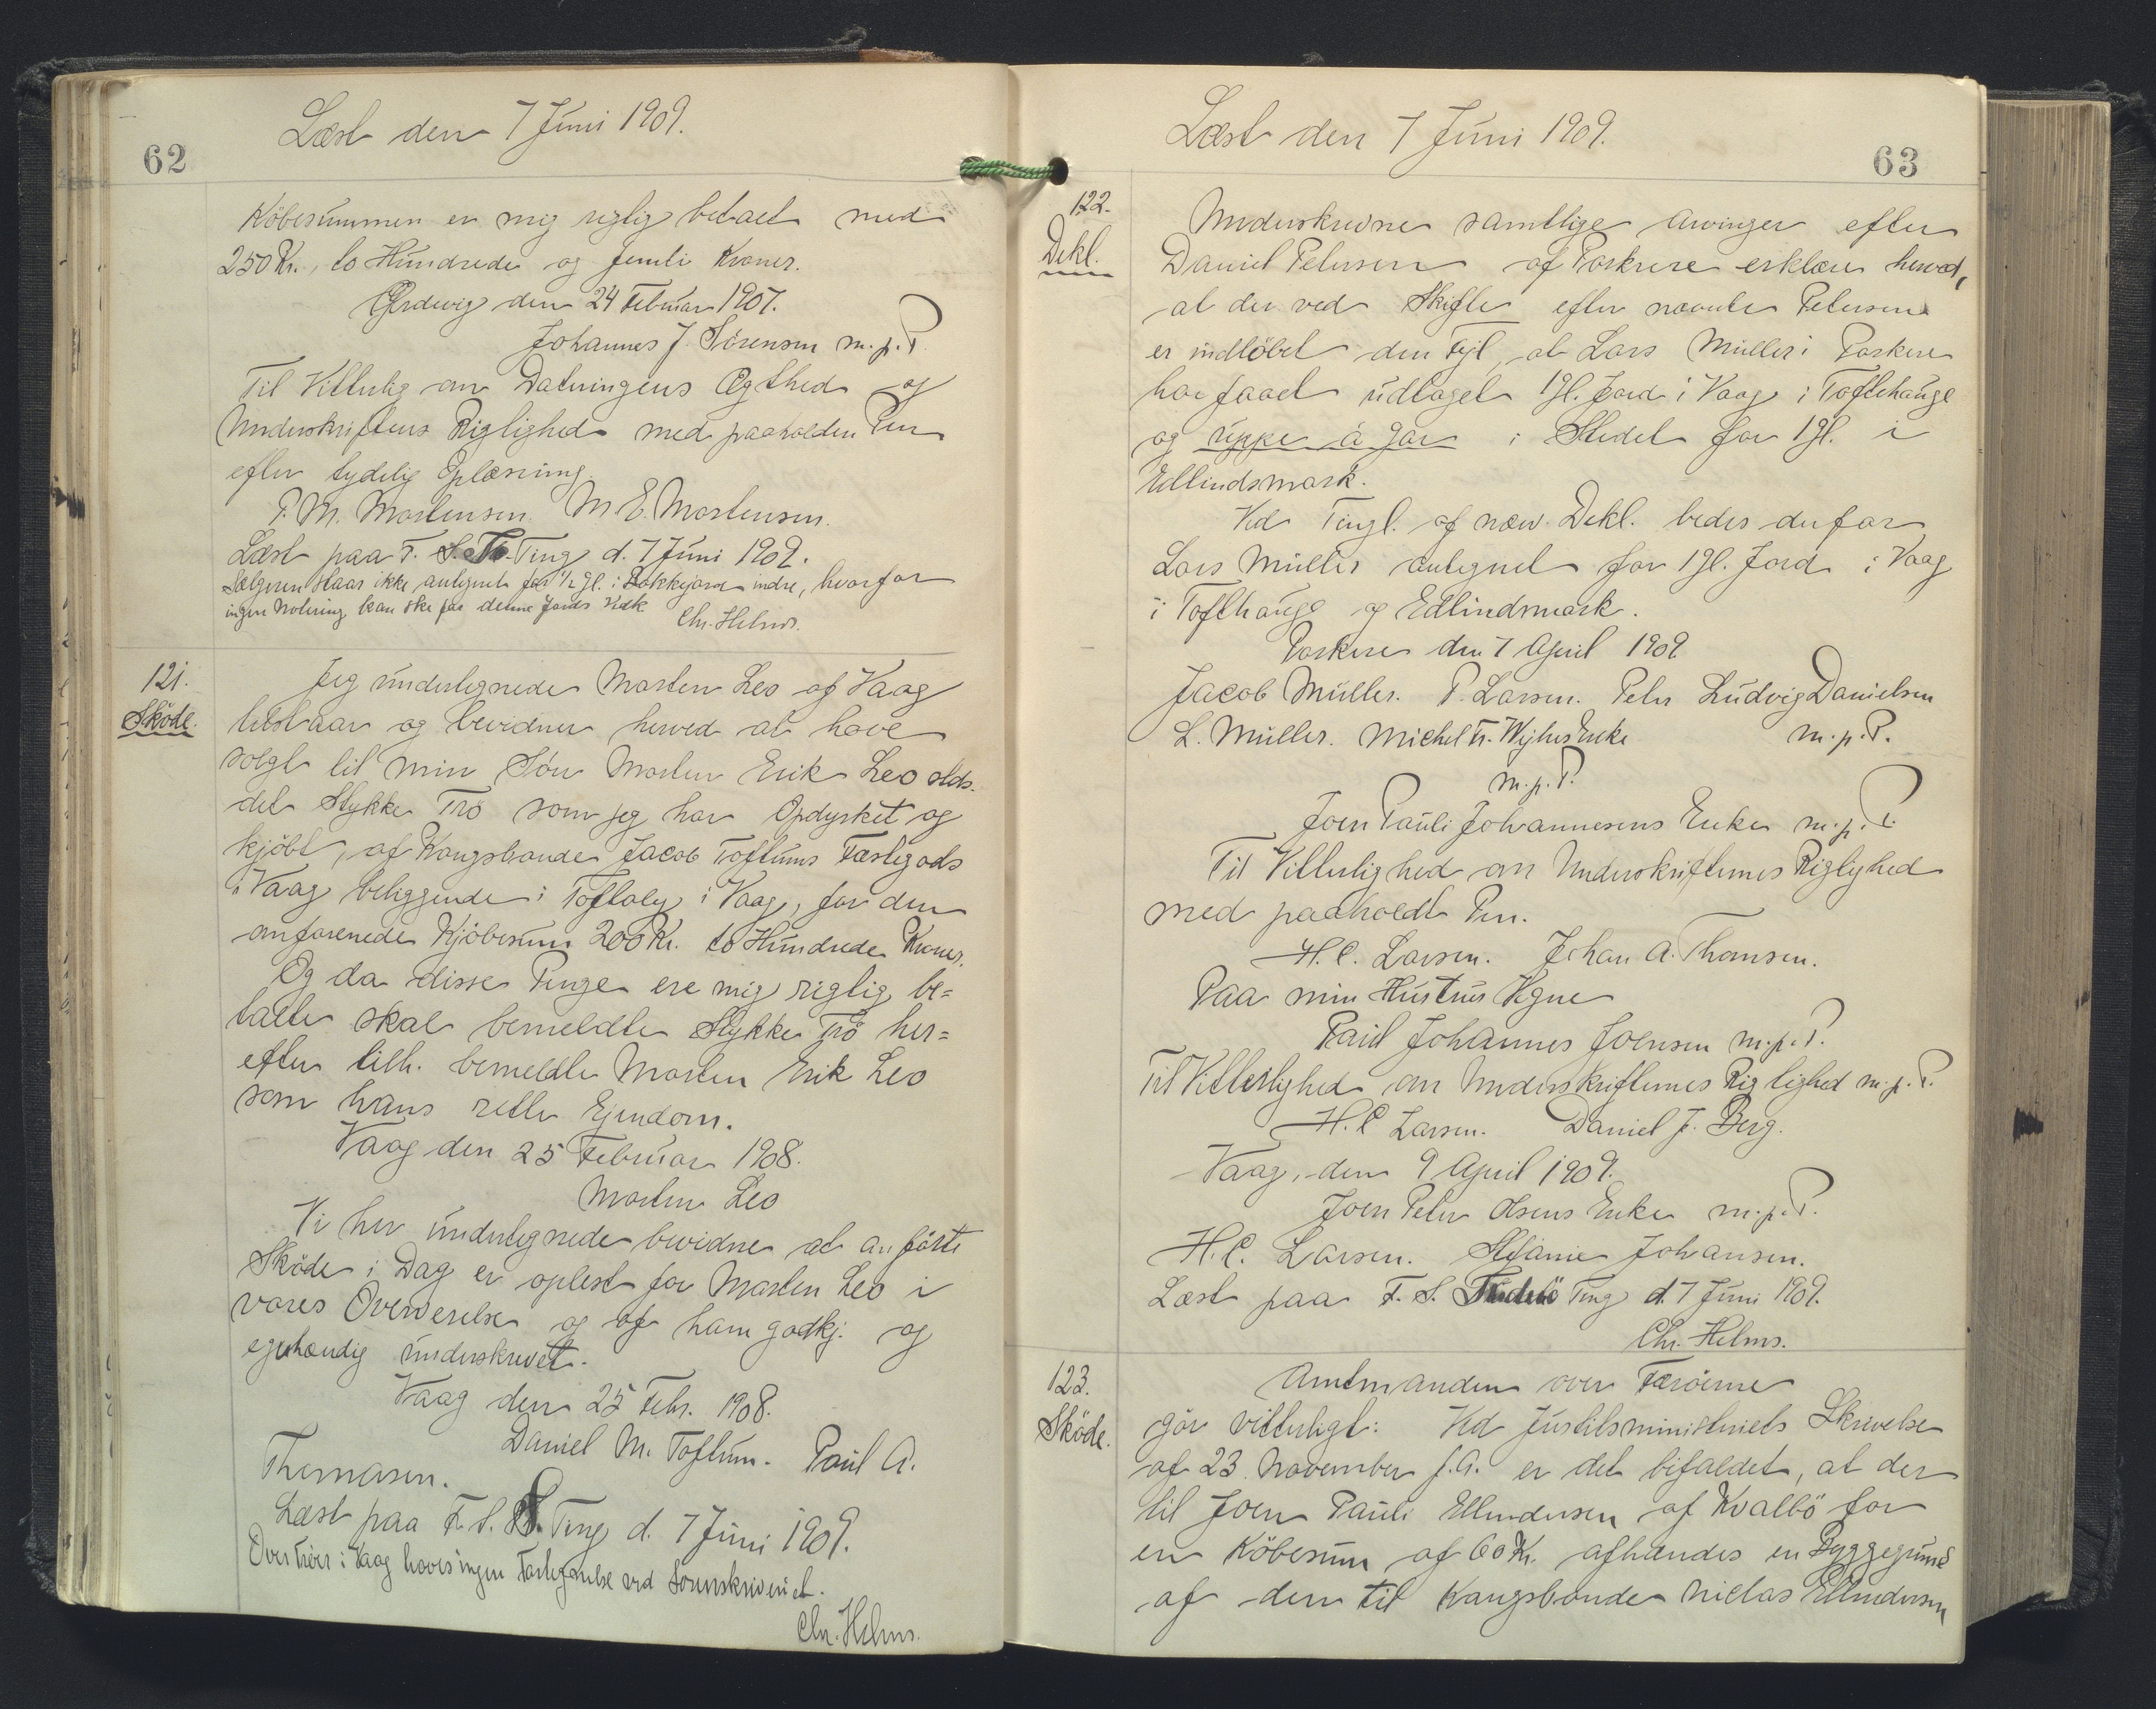 62
Læst den 7 Juni 1909.
Köbesummen er mig rigtig betalt med
250 Kr., to Hundrede og femti Kroner.
den 24 Februar 1907.
Johannes J. Sörensen m. p. P.
Til Vitterlig om Datumingens Ægthed og
Underskriftens Rigtighed med paaholden Pen
efter tydelig Oplæsning
P. M. Mortensen. M. E. Mortensen.
Læst paa F. S. Ting d. 7 Juni 1909.
Sælgeren staar ikke antegnet for 1/2 gl. i indre, hvorfor
ingen Notering kan ske for denne Jords Vedk.
Chr. Helms.
121.
Sköde.
Jeg undertegnede Morten Leo af Vaag
tilstaar og bevidner herved at have
solgt til min Sön Morten Erik Leo
det Stykke Trö som jeg har Opdyrket og
kjöbt, af Kongsbonde Jacob Toftums Fæstegods
i Vaag beliggende i i Vaag, for den
omforenede Kjöbesum 200 Kr. to Hundrede Kroner.
Og da disse Penge ere mig rigtig be=
talte skal bemeldte Stykke Trö her=
efter tilh. bemeldte Morten Erik Leo
som hans rette Ejendom.
Vaag den 25 Februar 1908.
Morten Leo
Vi her undertegnede bevidne at anförte
Sköde i Dag er oplest for Morten Leo i
vores Overværelse og af ham godkj. og
egenhændig underskrevet.
Vaag den 25 Febr. 1908.
Daniel M. Toftum. Poul A.
Thomasen.
Læst paa F. S. S. Ting d. 7 Juni 1909.
Over Tröer i Vaag haves ingen Fortegnelse ved Sorenskriveriet.
Chr. Helms.
63
Læst den 7 Juni 1909.
122.
Dekl.
Underskrevne samtlige Arvinger efter
Daniel Petersen af Porkere erklære herved,
at der ved Skifte efter nævnte Petersen
er indlöbet den Fejl, at Lars Müller i Porkere
har faaet udlaget 1 gl. Jord i Vaag i Toftehauge
og uppe á Gar i Stedet for 1 gl. i
Edlindsmark.
Ved Tingl. af næv. Dekl. bedes derfor
Lars Müller antegnet for 1 gl. Jord i Vaag
i Tofthauge og Edlindsmark.
Porkere den 7 April 1909
Jacob Müller. P. Larsen. Peter Ludvig Danielsen
L. Müller. Michel Fr. Wejhes Enke m. p. P.
m. p. P.
Joen Pauli Johannesens Enke m. p. P.
Til Vitterlighed om Underskrifternes Rigtighed
med paaholdt Pen.
H. C. Larsen. Johan A. Thomsen.
Paa min Hustrus Vegne
Poul Johannes Joensen m. p. P.
Til Vitterlighed om Underskrifternes Rigtighed m. p. P.
H. C. Larsen. Daniel J. Berg.
Vaag, den 9 April 1909.
Joen Peter Olsens Enke m. p. P.
H. C. Larsen. Stefanie Johansen.
Læst paa F. S. Suderö Ting d. 7 Juni 1909.
Chr. Helms.
123.
Sköde.
Amtmanden over Færöerne
gör vitterligt: Ved Justitsministeriets Skrivelse
af 23 November f. A. er det bifaldet, at der
til Joen Pauli Ellendersen af Kvalbö for
en Köbesum af 60 Kr. afhændes en Byggegrund
af den til Kongsbonde Niclas Ellendersen